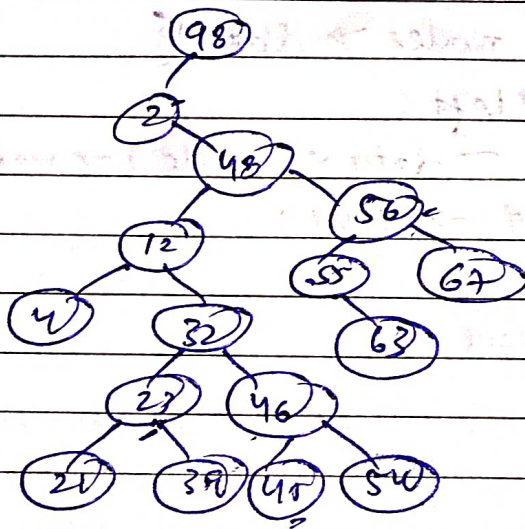 98
2
48
56
12
55
67
4
32
63
23
46
21
39
45
54